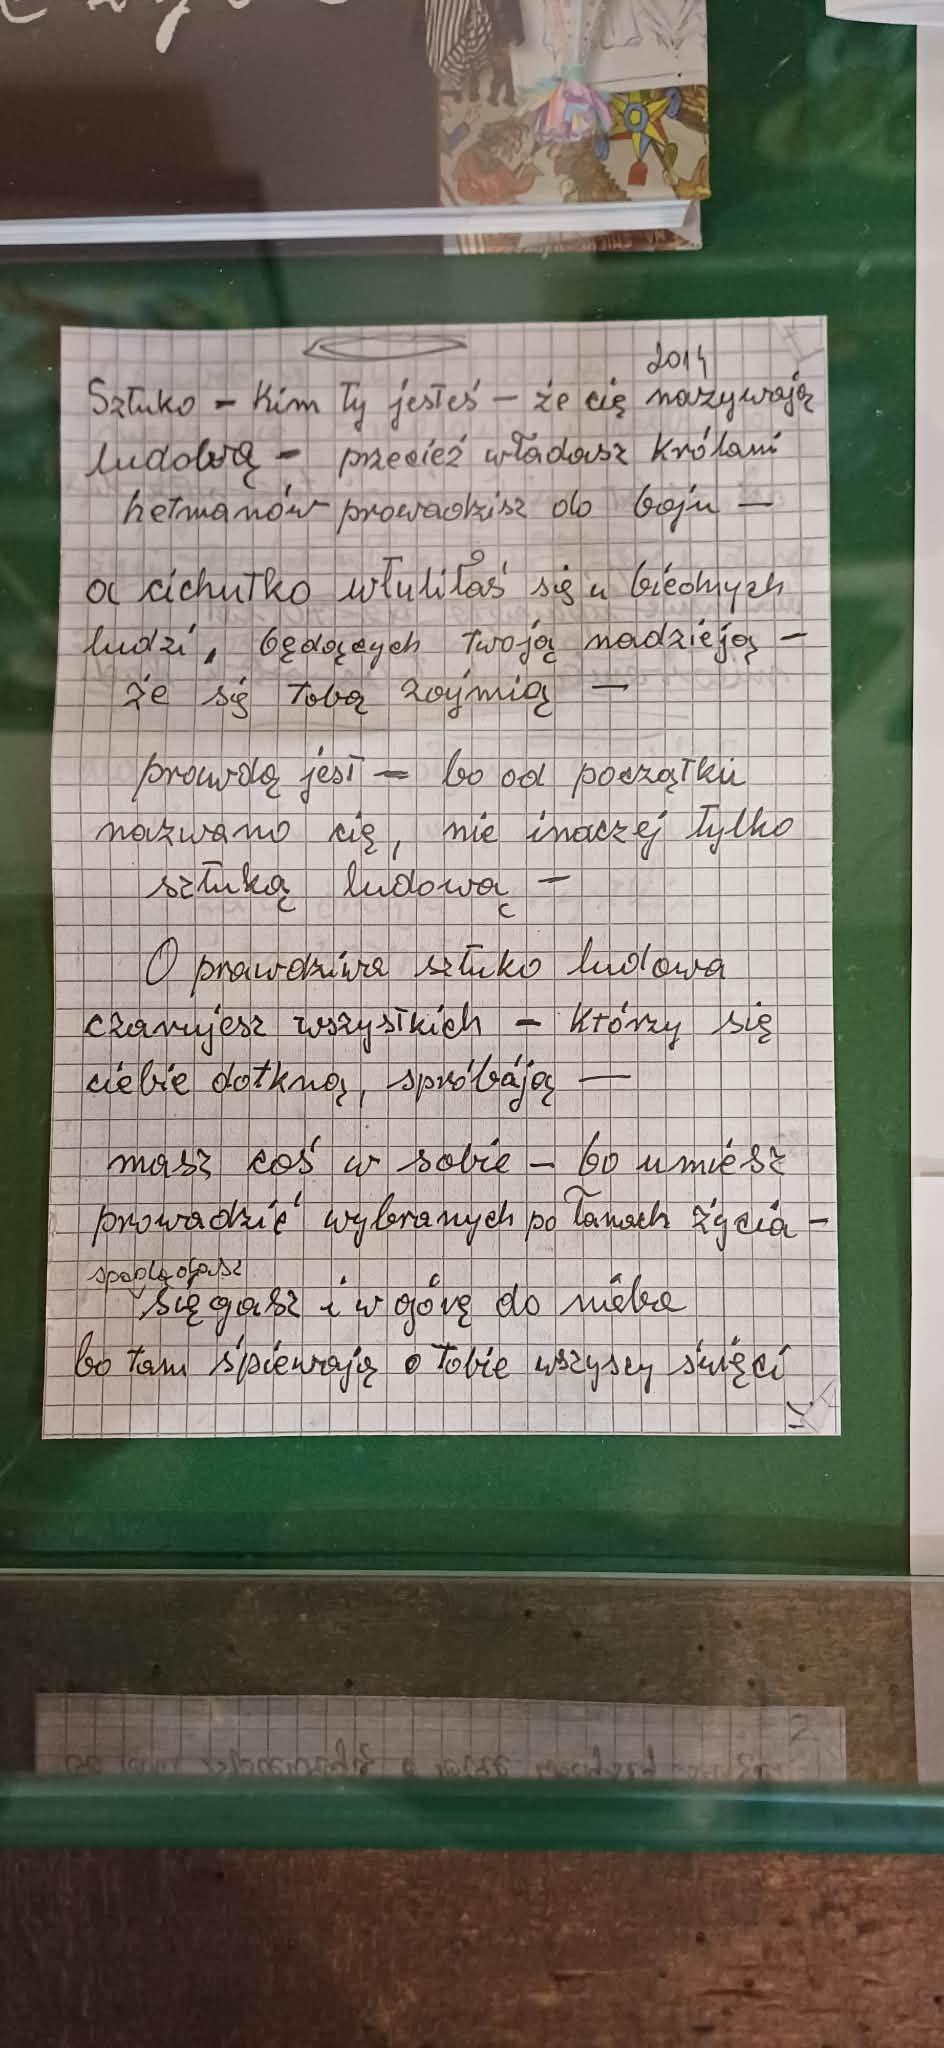 2014
Sztuko - Kim ty jesteś - że cię nazywają
ludową - przecież władasz Królami
hetmanów prowadzisz do boju -
a cichutko wtuliłaś się u biednych
ludzi, będących twoją nadzieją -
że się tobą zajmią -
prawdą jest - bo od początku
nazwano cię, nie inaczej tylko
sztuką ludową -
O prawdziwa sztuko ludowa
czarujesz wszystkich - którzy się
ciebie dotkną, spróbają -
masz coś w sobie - bo umiesz
prowadzić wybranych po łanach życia -
sięgasz i w górę do nieba
bo tam śpiewają o tobie wszyscy święci